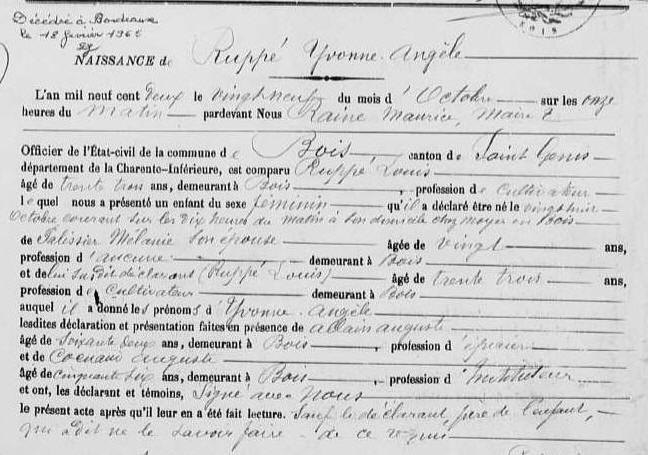 Décédée à Bordeaux
le 18 février 1965
BOIS
NAISSANCE de Ruppé Yvonne Angèle
L'an mil neuf cent deux le vingt neuf du mois d'Octobre sur les onze
heures du matin pardevant Nous Raine Maurice, Maire &
Officier de l'État-civil de la commune de Bois canton de Saint Genis
département de la Charente-Inférieure, est comparu Ruppé Louis
âgé de trente trois ans, demeurant à Bois, profession de cultivateur
lequel nous a présenté un enfant du sexe féminin qu'il a déclaré être né le vingt huit
Octobre courant sur les dix heures du matin à son domicile chez moyer en Bois
de Palissier Mélanie son épouse âgée de vingt ans,
profession d'aucune demeurant à Bois
et de lui susdit déclarant (Ruppé Louis) âgé de trente trois ans,
profession de cultivateur demeurant à Bois
auquel il a donné les prénoms d'Yvonne Angèle
lesdites déclaration et présentation faites en présence de allain auguste
âgé de soixante deux ans, demeurant à Bois, profession d'épicier
et de auguste
âgé de cinquante six ans, demeurant à Bois, profession d'instituteur
et ont, les déclarant et témoins, signé avec Nous
le présent acte après qu'il leur en a été fait lecture. Sauf le déclarant, père de l'enfant,
qui a dit ne le savoir faire de ce requis